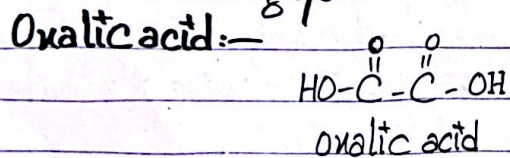 Oxalic acid:—
O O
HO-C-C-OH
oxalic acid